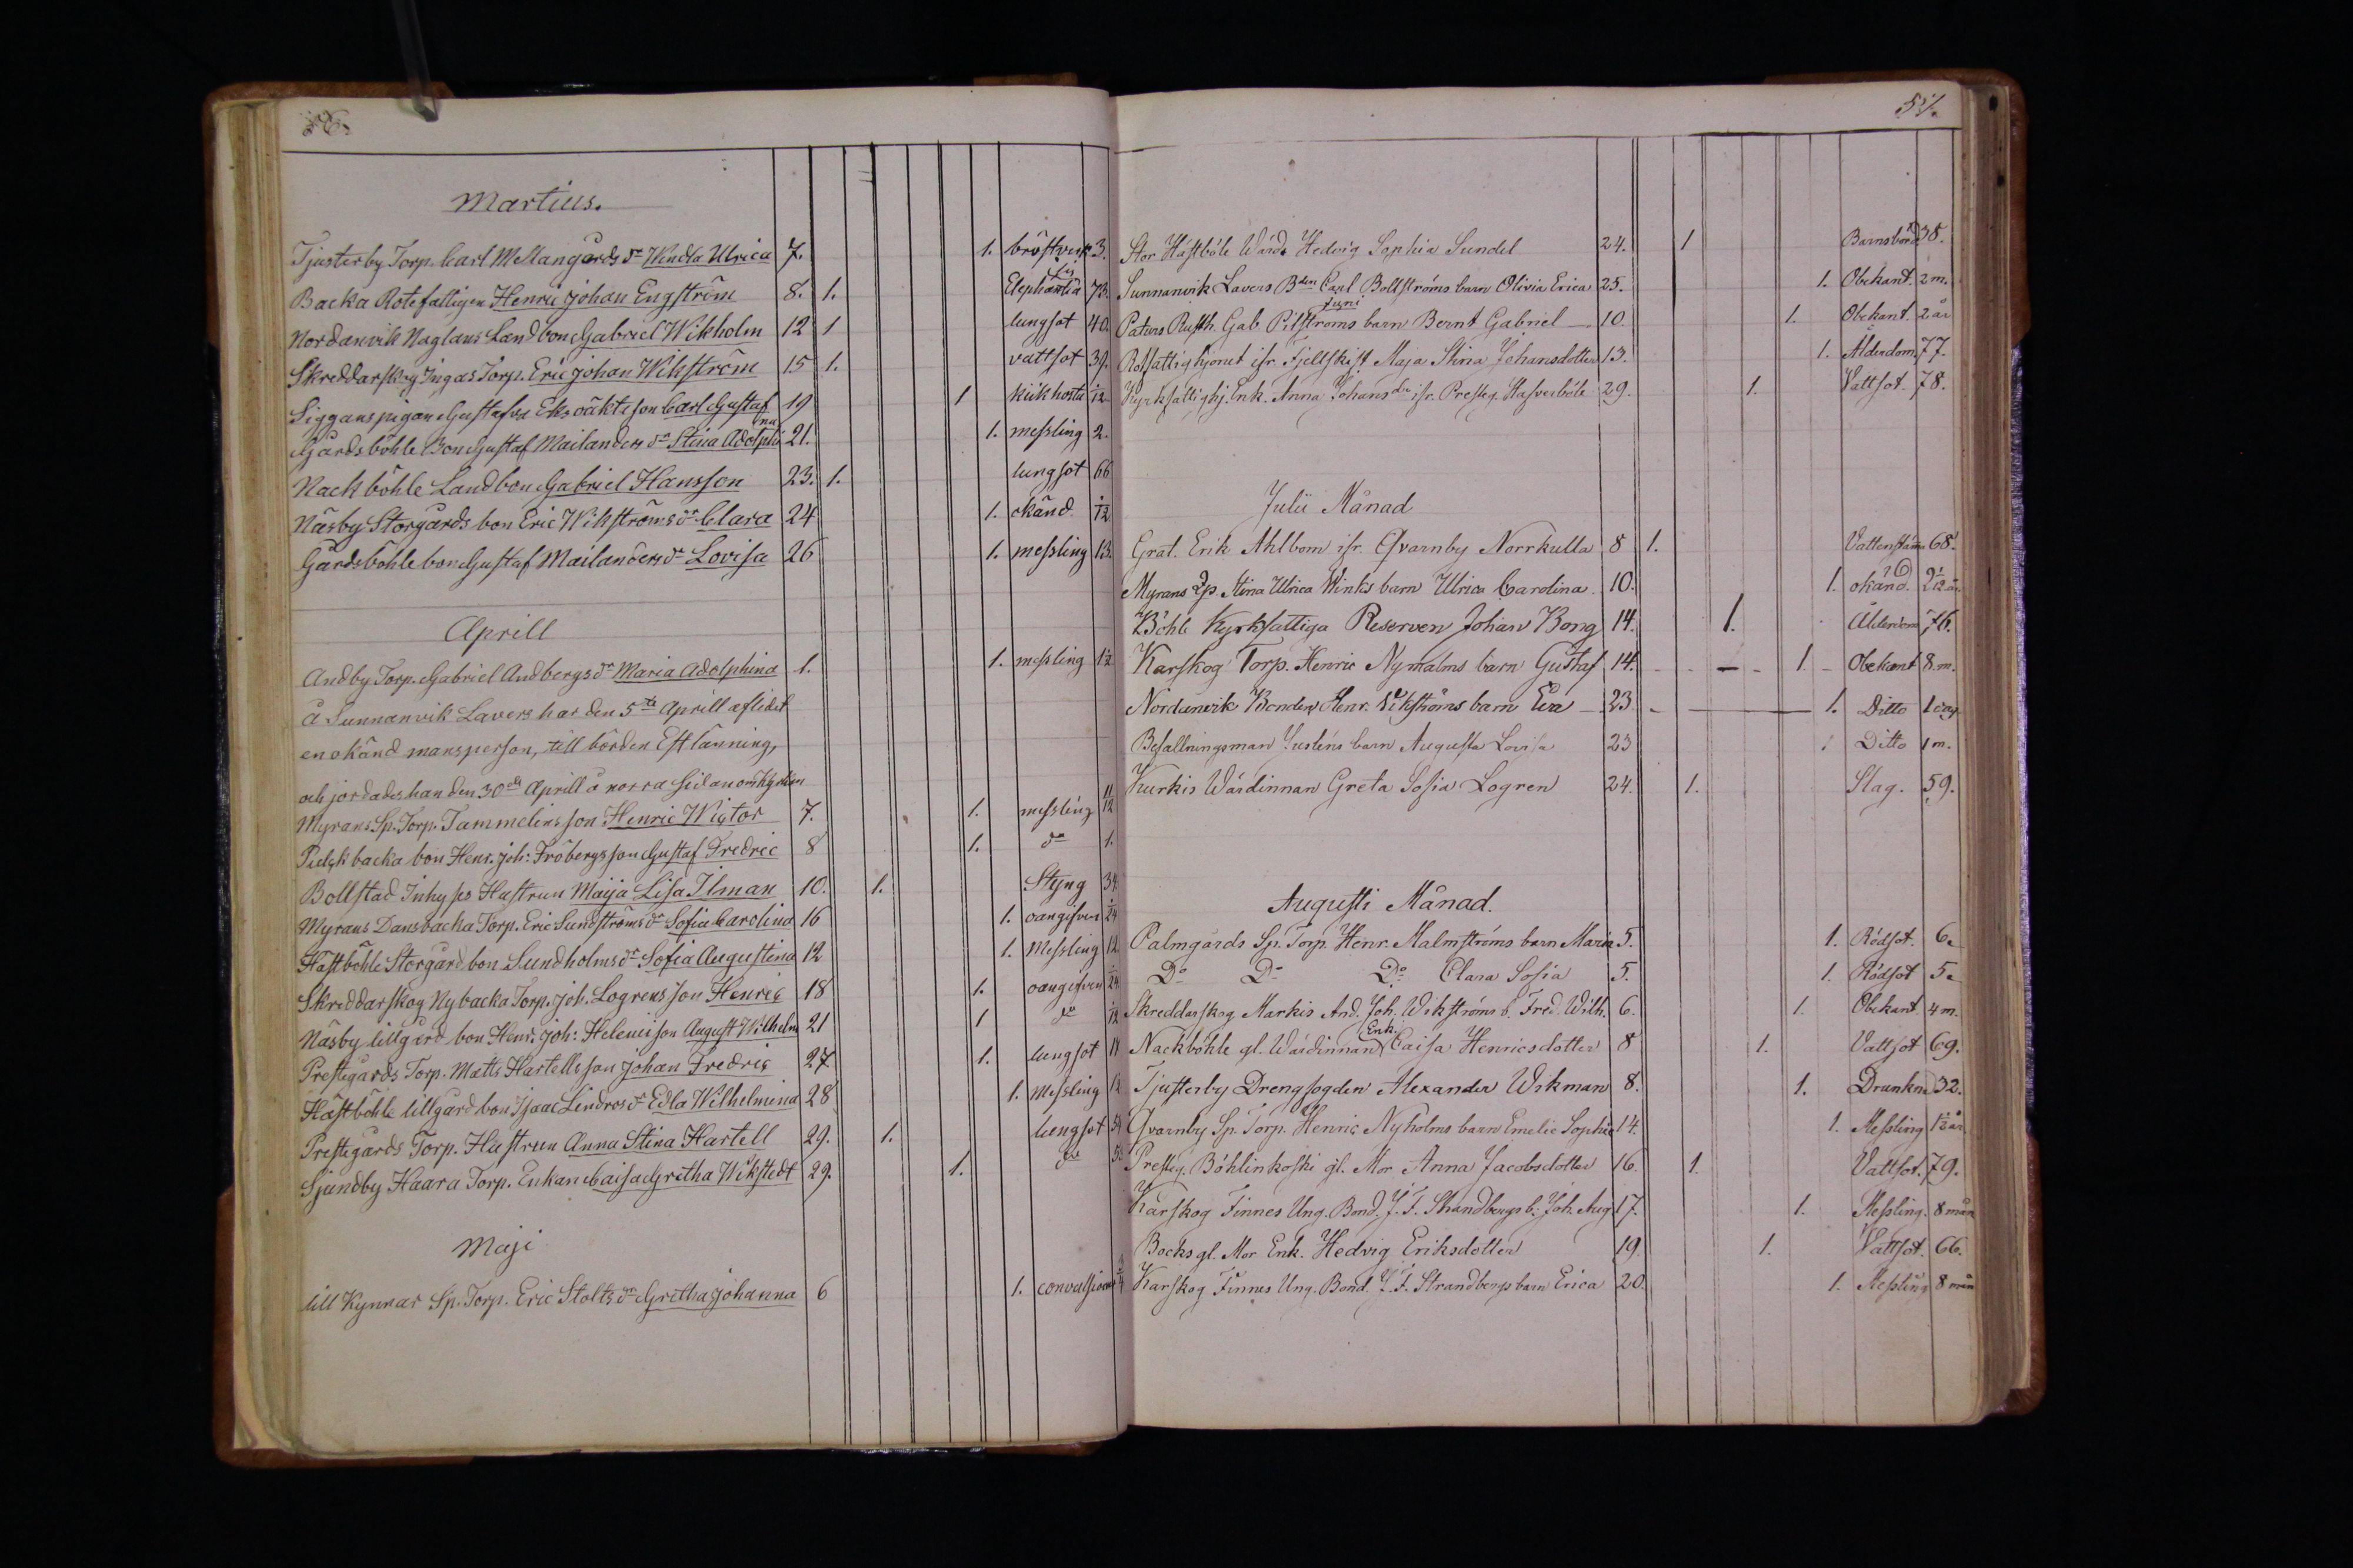 56.
Martius.
Tjusterby Torp. Carl Mellangårds dr Wendla Ulrica 7. 1. bröstverk 3.
Backa Rotefattigen Henric Johan Engström 8. 1. Elephantiasis 73.
Nordanvik Naglans Landbon Gabriel Wikholm 12 1 lungsot 40.
Skreddarskog Ingas Torp. Eric Johan Wikström 15 1. vattsot 39.
Siggans pigan Gustafvas Ek oäkta son Carl Gustaf 19 1 kikhosta 1/12
Gårdsböhle Bon Gustaf Mailanders dr Stina Adolphina 21. 1. messling 2.
Nackböhle Landbon Gabriel Hansson 23. 1. lungsot 66
Näsby Storgårds bon Eric Wikströms dr Clara 24 1. okänd 1/12
Gårdsböhle bon Gustaf Mailanders dr Lovisa 26 1. messling 13.
Aprill
Andby Torp. Gabriel Andbergs dr Maria Adolphina 1. 1. messling 1/2
å Sunnanvik Lavers har den 5te Aprill aflidit
en okänd mansperson, till börden Estlänning,
och jordades han den 30de Aprill å norra sidan om kyrkan
Myrans Sp. Torp. Tammelins son Henric Wictor 7. 1. messling 11/12
backa bon Henr. Joh: Frobergs son Gustaf Fredric 8 1. do 1.
Bollstad Inhyses Hustrun Maija Lisa Ilman 10. 1. Styng 34.
Myrans Dansbacka Torp. Eric Sundströms dr Sofia Carolina 16 1. oangifven 1/24
Hästböhle Storgård bon Sundholms dr Sofia Augustina 12 1. Messling 12.
Skreddarskog Nybacka Torp. Joh. Logrens son Henric 18 1. oangifven 1/24
Näsby lillgård bon Henr. Joh: Helenii son August Wilhelm 21 1 do 1/12
Prestgårds Torp. Matts Hartells son Johan Fredric 27 1. lungsot 11
Hästböhle lillgård bon Isaac Lindros dr Edla Wilhelmina 28 1. Messling 1/2
Prestgårds Torp. Hustrun Anna Stina Hartell 29. 1. lungsot
Sjundby Haara Torp. Enkan Caisa Gretha Wikstedt 29. 1. do
Maji
lill Kynnar Sp. Torp. Eric Stolts dr Gretha Johanna 6 1. convulsioner 3/4
57.
Stor Hästböle Wärd. Hedvig Sophia Sundel 24. 1 Barnsbörd 38.
Sunnanvik Lavers Bden Carl Bollströms barn Olivia Erica 25. 1. Obekant. 2 m.
Juni
Paturs Rusth. Gab. Pilströms barn Bernt Gabriel 10. 1. Obekant. 2 år
Rotfattighjonet ifr. Fjellskift Maja Stina Johansdotter 13. 1. Ålderdom 77.
Kyrkfattighj. Enk. Anna Johansdr ifr. Prestg. Hasverböle 29. 1. Vattsot. 78.
Julii Månad
Grat. Erik Ahlbom ifr. Qvarnby Norrkulla 8 1. 68.
Myrans Sp. Stina Ulrica Winks barn Ulrica Carolina. 10. 1. okänd. 2 1/12 år
Böhle Kyrkfattiga Reserven Johan Bong 14. 1. Ålderdom 76.
Karskog Torp. Henric Nymalms barn Gustaf 14. 1. Obekant 8 m.
Nordanvik Bonden Henr. Wikströms barn Eva 23 1. Ditto 1 dag
Befallningsman Justéns barn Augusta Lovisa 23 1 Ditto 1 m.
Kurkis Wärdinnan Greta Sofia Logren 24. 1. Slag. 59.
Augusti Månad.
Palmgårds Sp. Torp. Henr. Malmströms barn Maria 5. 1. Rödsot. 6.
Do Do Do Clara Sofia 5. 1. Rödsot 5.
Skreddarskog Markis And. Joh. Wikströms b. Fred. Wilh. 6. 1. Obekant 4 m.
Nackböhle gl. Wärdinnan Enk. Caisa Henricsdotter 8 1. Vattsot 69.
Tjusterby Drengfogden Alexander Wikman 8. 1. Drunknad 32.
Qvarnby Sp. Torp. Henric Nyholms barn Emelie Sophia 14. 1. Messling 1 1/2 år
Prestg. Böhlinkoski gl. Mor Anna Jacobsdotter 16. 1. Vattsot. 79.
Karskog Finnes Ung. Bond. J. F. Strandbergs b. Joh. Aug 17. 1. Messling. 8 mån
Bocks gl. Mor Enk. Hedvig Eriksdotter 19. 1. Vattsot. 66.
Karskog Finnes Ung. Bond. J. F. Strandbergs barn Erica 20. 1. Messling 8 mån